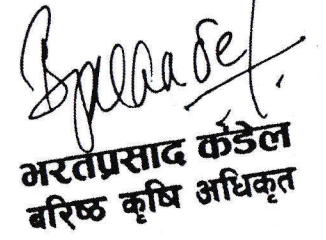 भरतप्रसाद कंडेल
बरिष्ठ कृषि अधिकृत